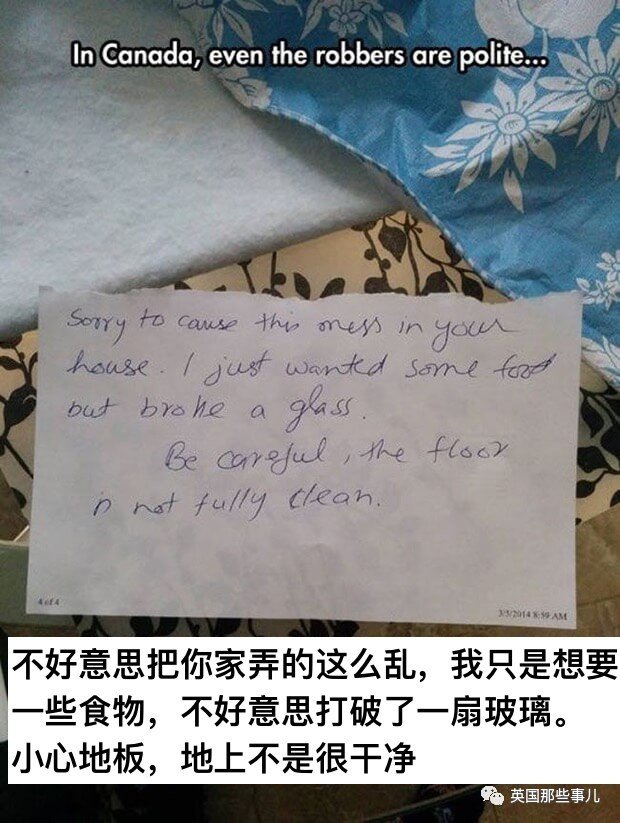 In Canada, even the robbers are polite...
Sorry to cause this mess in your
house. I just wanted some food
but broke a glass.
Be careful, the floor
is not fully clean.
4 of 4
3/5/2014 8:59 AM
不好意思把你家弄的这么乱，我只是想要
一些食物，不好意思打破了一扇玻璃。
小心地板，地上不是很干净
英国那些事儿